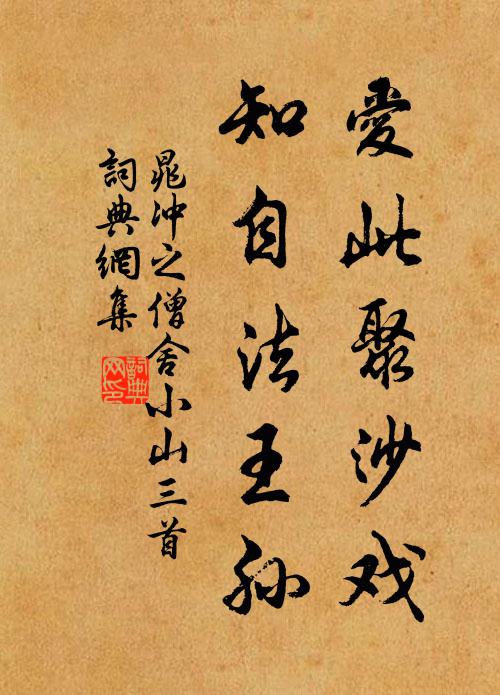 愛此聚沙戏
知自法王孙
晁冲之僧舍小山三首
詞典網集
詞典网印